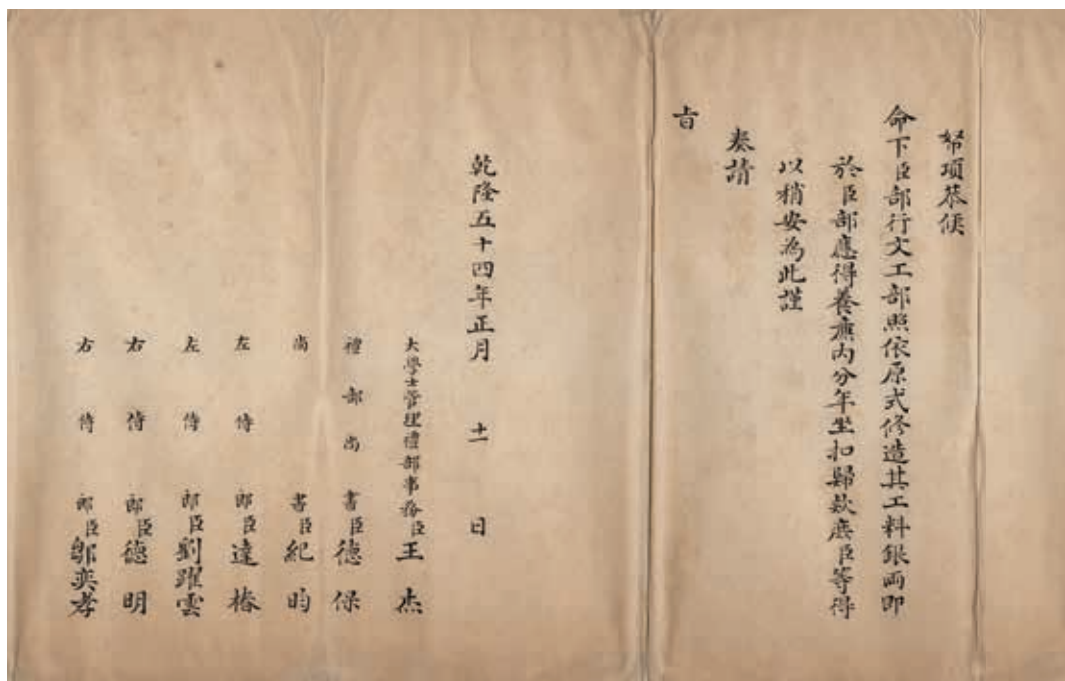 帑項恭候
命下臣部行文工部照依原式修造其工料銀兩即
於臣部應得養廉內分年坐扣歸款庶臣等得
以稍安為此謹
奏請
旨
乾隆五十四年正月 十一 日
大學士管理禮部事務臣王杰
禮部尚書臣德保
尚書臣紀昀
左侍郎臣達椿
左侍郎臣劉躍雲
右侍郎臣德明
右侍郎臣鄒奕孝